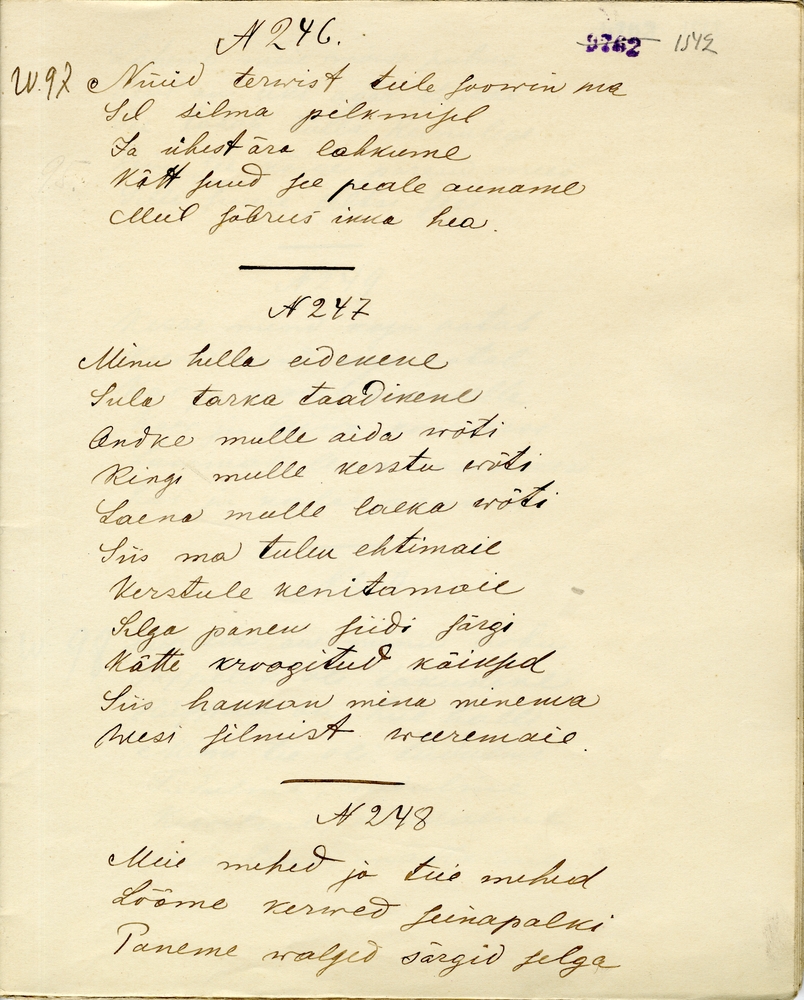 N 246.
9762 1542
W.97 Nüüd terwist teile soowin ma
Sel silma pilkmisel
Ja ühest ära lahkume
Kätt suud see peale anname
Meil sõbrus ikka hea.
N 247
Minu hella eidekene
Sula tarka taadikene
Andke mulle aida wõti
Ringi mulle kerstu wõti
Laena mulle laeka wõti
Siis ma tulen ehtimaie
Kerstule kenitamaie
Selga panen siidi särgi
Kätte kroogitud käiksed
Siis hakkan mina minema
Wesi silmist weeremaie.
N 248
Meie mehed ja teie mehed
Lööme kerwed seinapalki
Paneme walged särgid selga